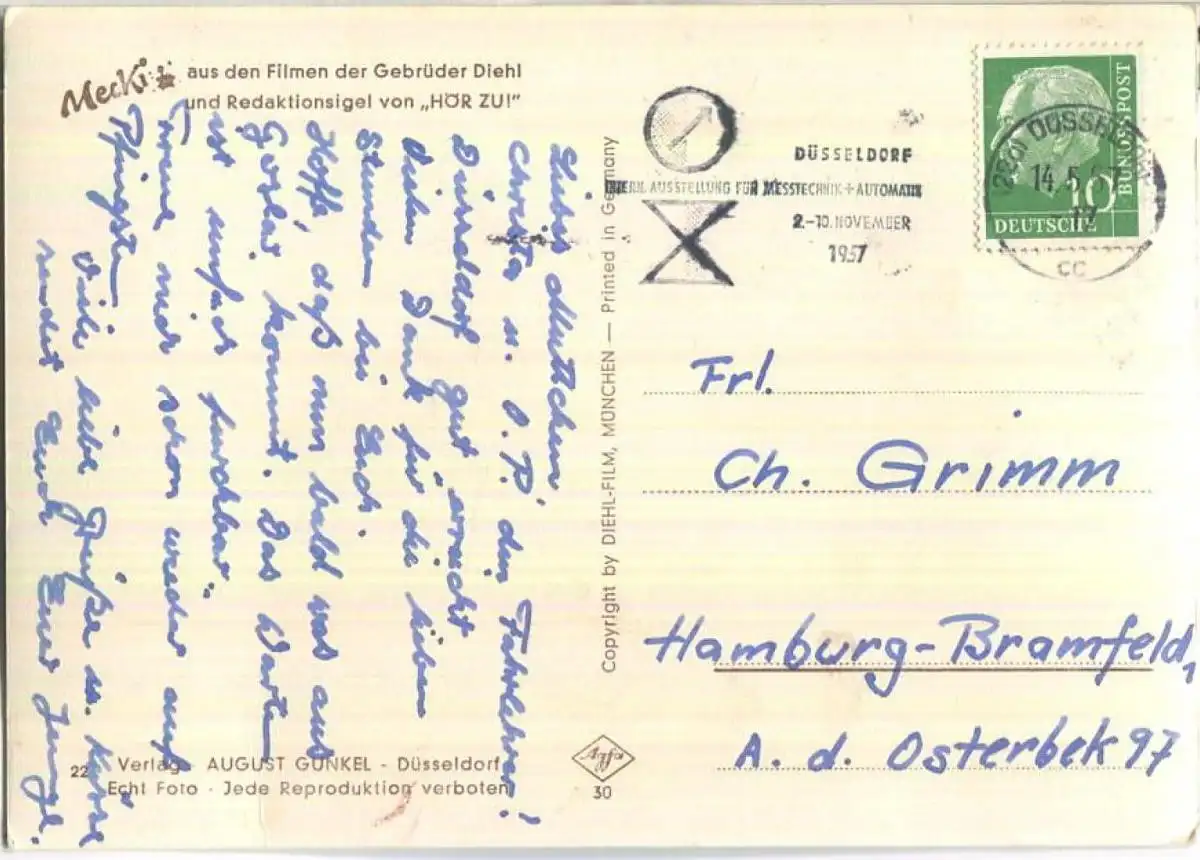 Mecki
aus den Filmen der Gebrüder Diehl
und Redaktionsigel von „HÖR ZU!"
Liebes Muttchen,
Christa u. O.P. den Fahrlehrer!
Düsseldorf gut erreicht
vielen Dank für die lieben
Stunden bei Euch.
Hoffe, daß nun bald was aus
Goslar kommt. Das Warten
ist einfach furchbar.
Freue mich schon wieder auf
Pfingsten
Viele liebe Grüße u. Küsse
sendet Euch Euer Junge.
22 Verlag AUGUST GUNKEL - Düsseldorf
Echt Foto · Jede Reproduktion verboten
Copyright by DIEHL-FILM, MÜNCHEN — Printed in Germany
Agfa
30
DÜSSELDORF
INTERN. AUSSTELLUNG FÜR MESSTECHNIK + AUTOMATIK
2.-10. NOVEMBER
1957
DÜSSELDORF
14.5.57
CC
10
DEUTSCHE
BUNDESPOST
Frl.
Ch. Grimm
Hamburg-Bramfeld,
A. d. Osterbek 97